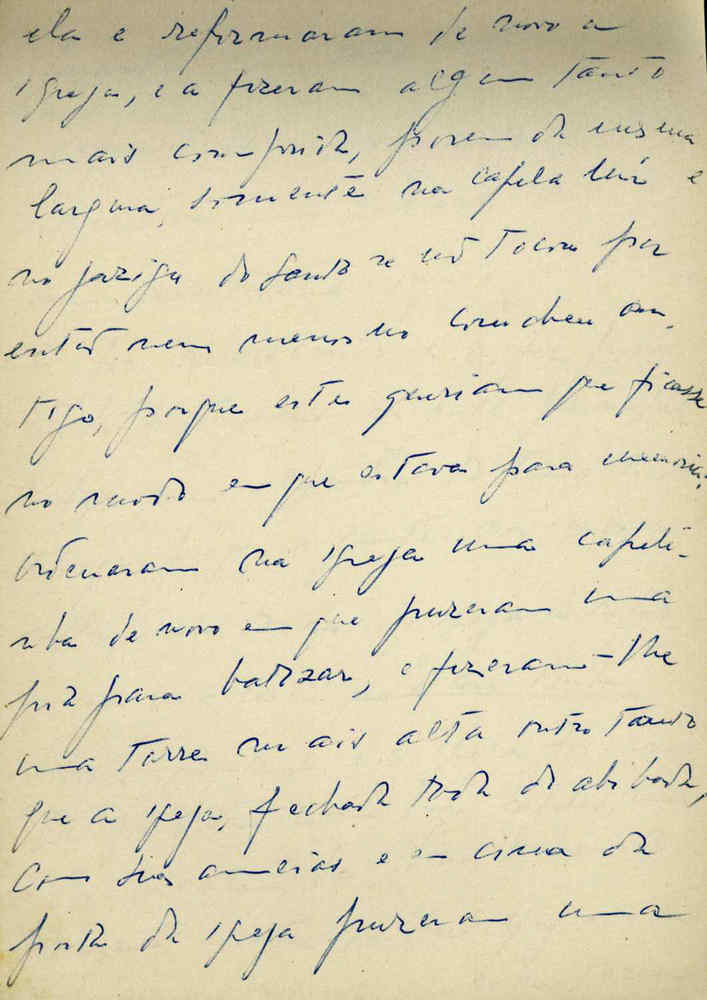 ela e reformaram de novo a
igreja, e a fizeram algum tanto
mais comprida, porem da mesma
largura, somente na capela e
no jazigo do Santo se não tocou por
então nem menos no corucheu an-
tigo, porque estes queriam que ficasse
no modo em que estava para memoria;
ordenaram na igreja uma capeli-
nha de novo em que puzeram uma
pia para batizar, e fizeram-lhe
uma torre mais alta outro tanto
que a igreja, fechada toda de abobada,
com suas ameias e em cima da
porta da igreja puzeram uma